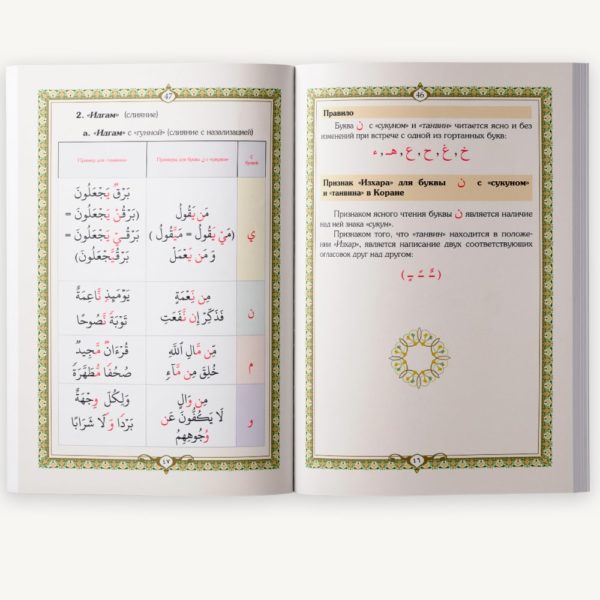 46
Правило
Буква ن с «сукуном» и «танвин» читается ясно и без
изменений при встрече с одной из гортанных букв:
خ , غ , ح , ع , هـ , ء
Признак «Изхара» для буквы ن с «сукуном»
и «танвина» в Коране
Признаком ясного чтения буквы ن является наличие
над ней знака «сукун».
Признаком того, что «танвин» находится в положе-
нии «Изхар», является написание двух соответствующих
огласовок друг над другом:
( ـًـٌـٍ )
٤٦
47
2. «Идгам» (слияние)
а. «Идгам» с «гунной» (слияние с назализацией)
ي
مَن يَقُولُ
(مَيْ يَقُولُ = مَيَّقُولُ )
وَ مَن يَعْمَلْ
بَرْقٌ يَجْعَلُونَ
(بَرْقُنْ يَجْعَلُونَ =
بَرْقُيْ يَجْعَلُونَ =
بَرْقُيَّجْعَلُونَ)
ن
مِن نِّعْمَةٍ
فَذَكِّرْ إِن نَّفَعَتِ
يَوْمَئِذٍ نَّاعِمَةٌ
تَوْبَةً نَّصُوحًا
م
مِّن مَّالِ ٱللَّهِ
خُلِقَ مِن مَّآءٍ
قُرْءَانٌ مَّجِيدٌ
صُحُفًا مُّطَهَّرَةً
و
مِن وَالٍ
لَا يَكُفُّونَ عَن
وُجُوهِهِمُ
وَلِكُلٍّ وِجْهَةٌ
بَرْدًا وَ لَا شَرَابًا
٤٧